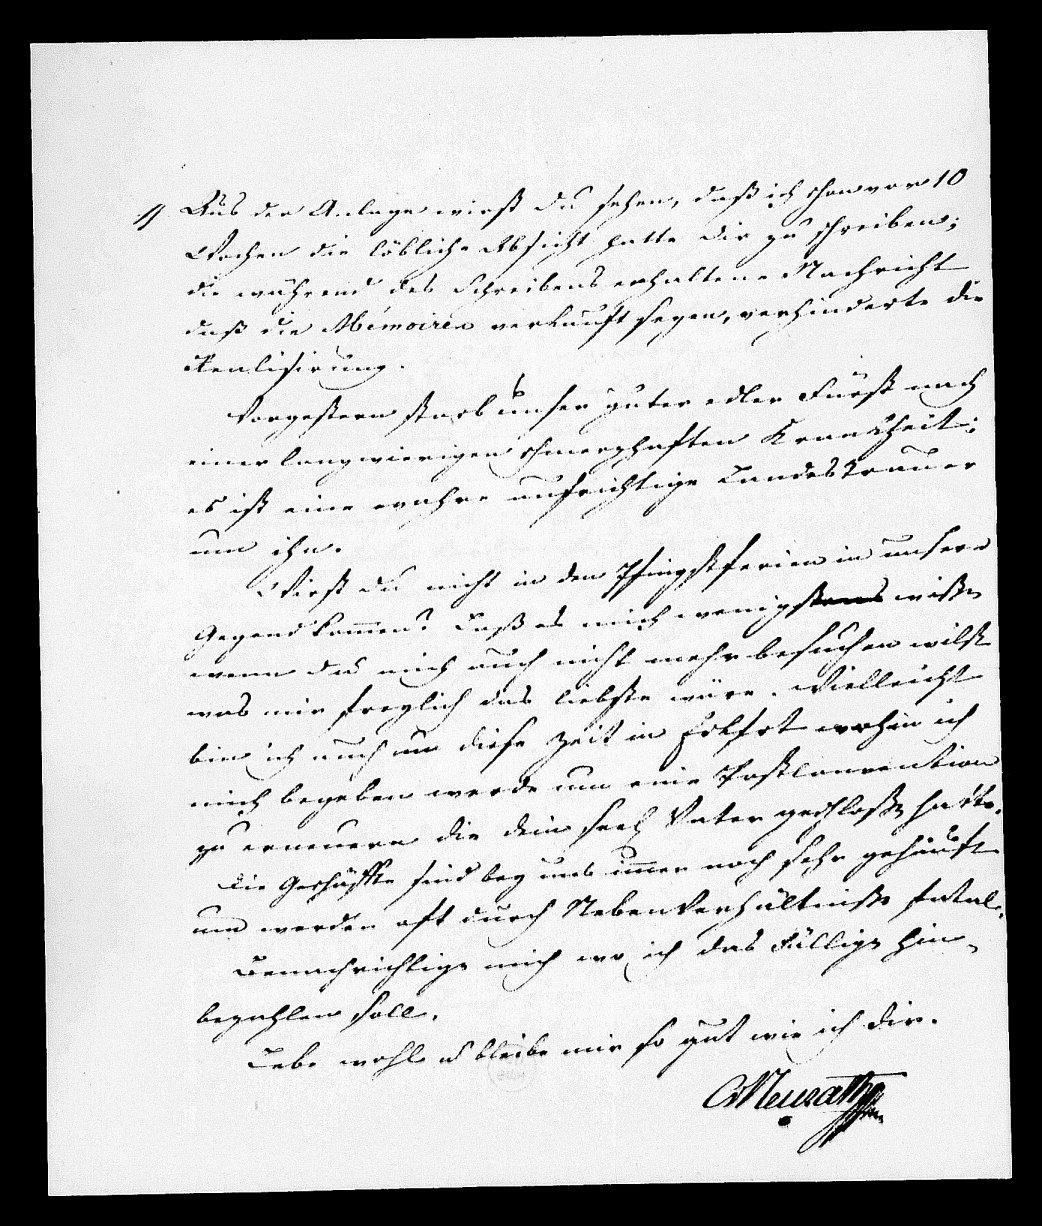 Aus der Anlage wirst du sehen, daß ich schon vor 10
Wochen die löbliche Absicht hatte dir zu schreiben;
die während des Schreibens erhaltene Nachricht
daß die Mémoiren verkauft seyen, verhinderte die
Realisirung.
Vorgestern starb unser guter edler Fürst nach
einer langwierigen schmerzhaften Krankheit;
es ist eine wahre aufrichtige Landestrauer
um ihn.
Wirst du nicht in den Pfingstferien in unsere
Gegend kommen? Laß es mich wenigstens wißen
wenn du mich auch nicht mehr besuchen willst
was mir freylich das liebste wäre. Vielleicht
bin ich auch um diese Zeit in wohin ich
mich begeben werde um eine Postconvention
zu erneuern die dein seel. Vater geschloßen hatte.
Die Geschäffte sind bey uns immer noch sehr gehäuft
und werden oft durch Nebenverhältniße fatal.
Benachrichtige mich wo ich das Fällige hin-
bezahlen soll.
Lebe wohl u bleibe mir so gut wie ich dir.
CvNeurath